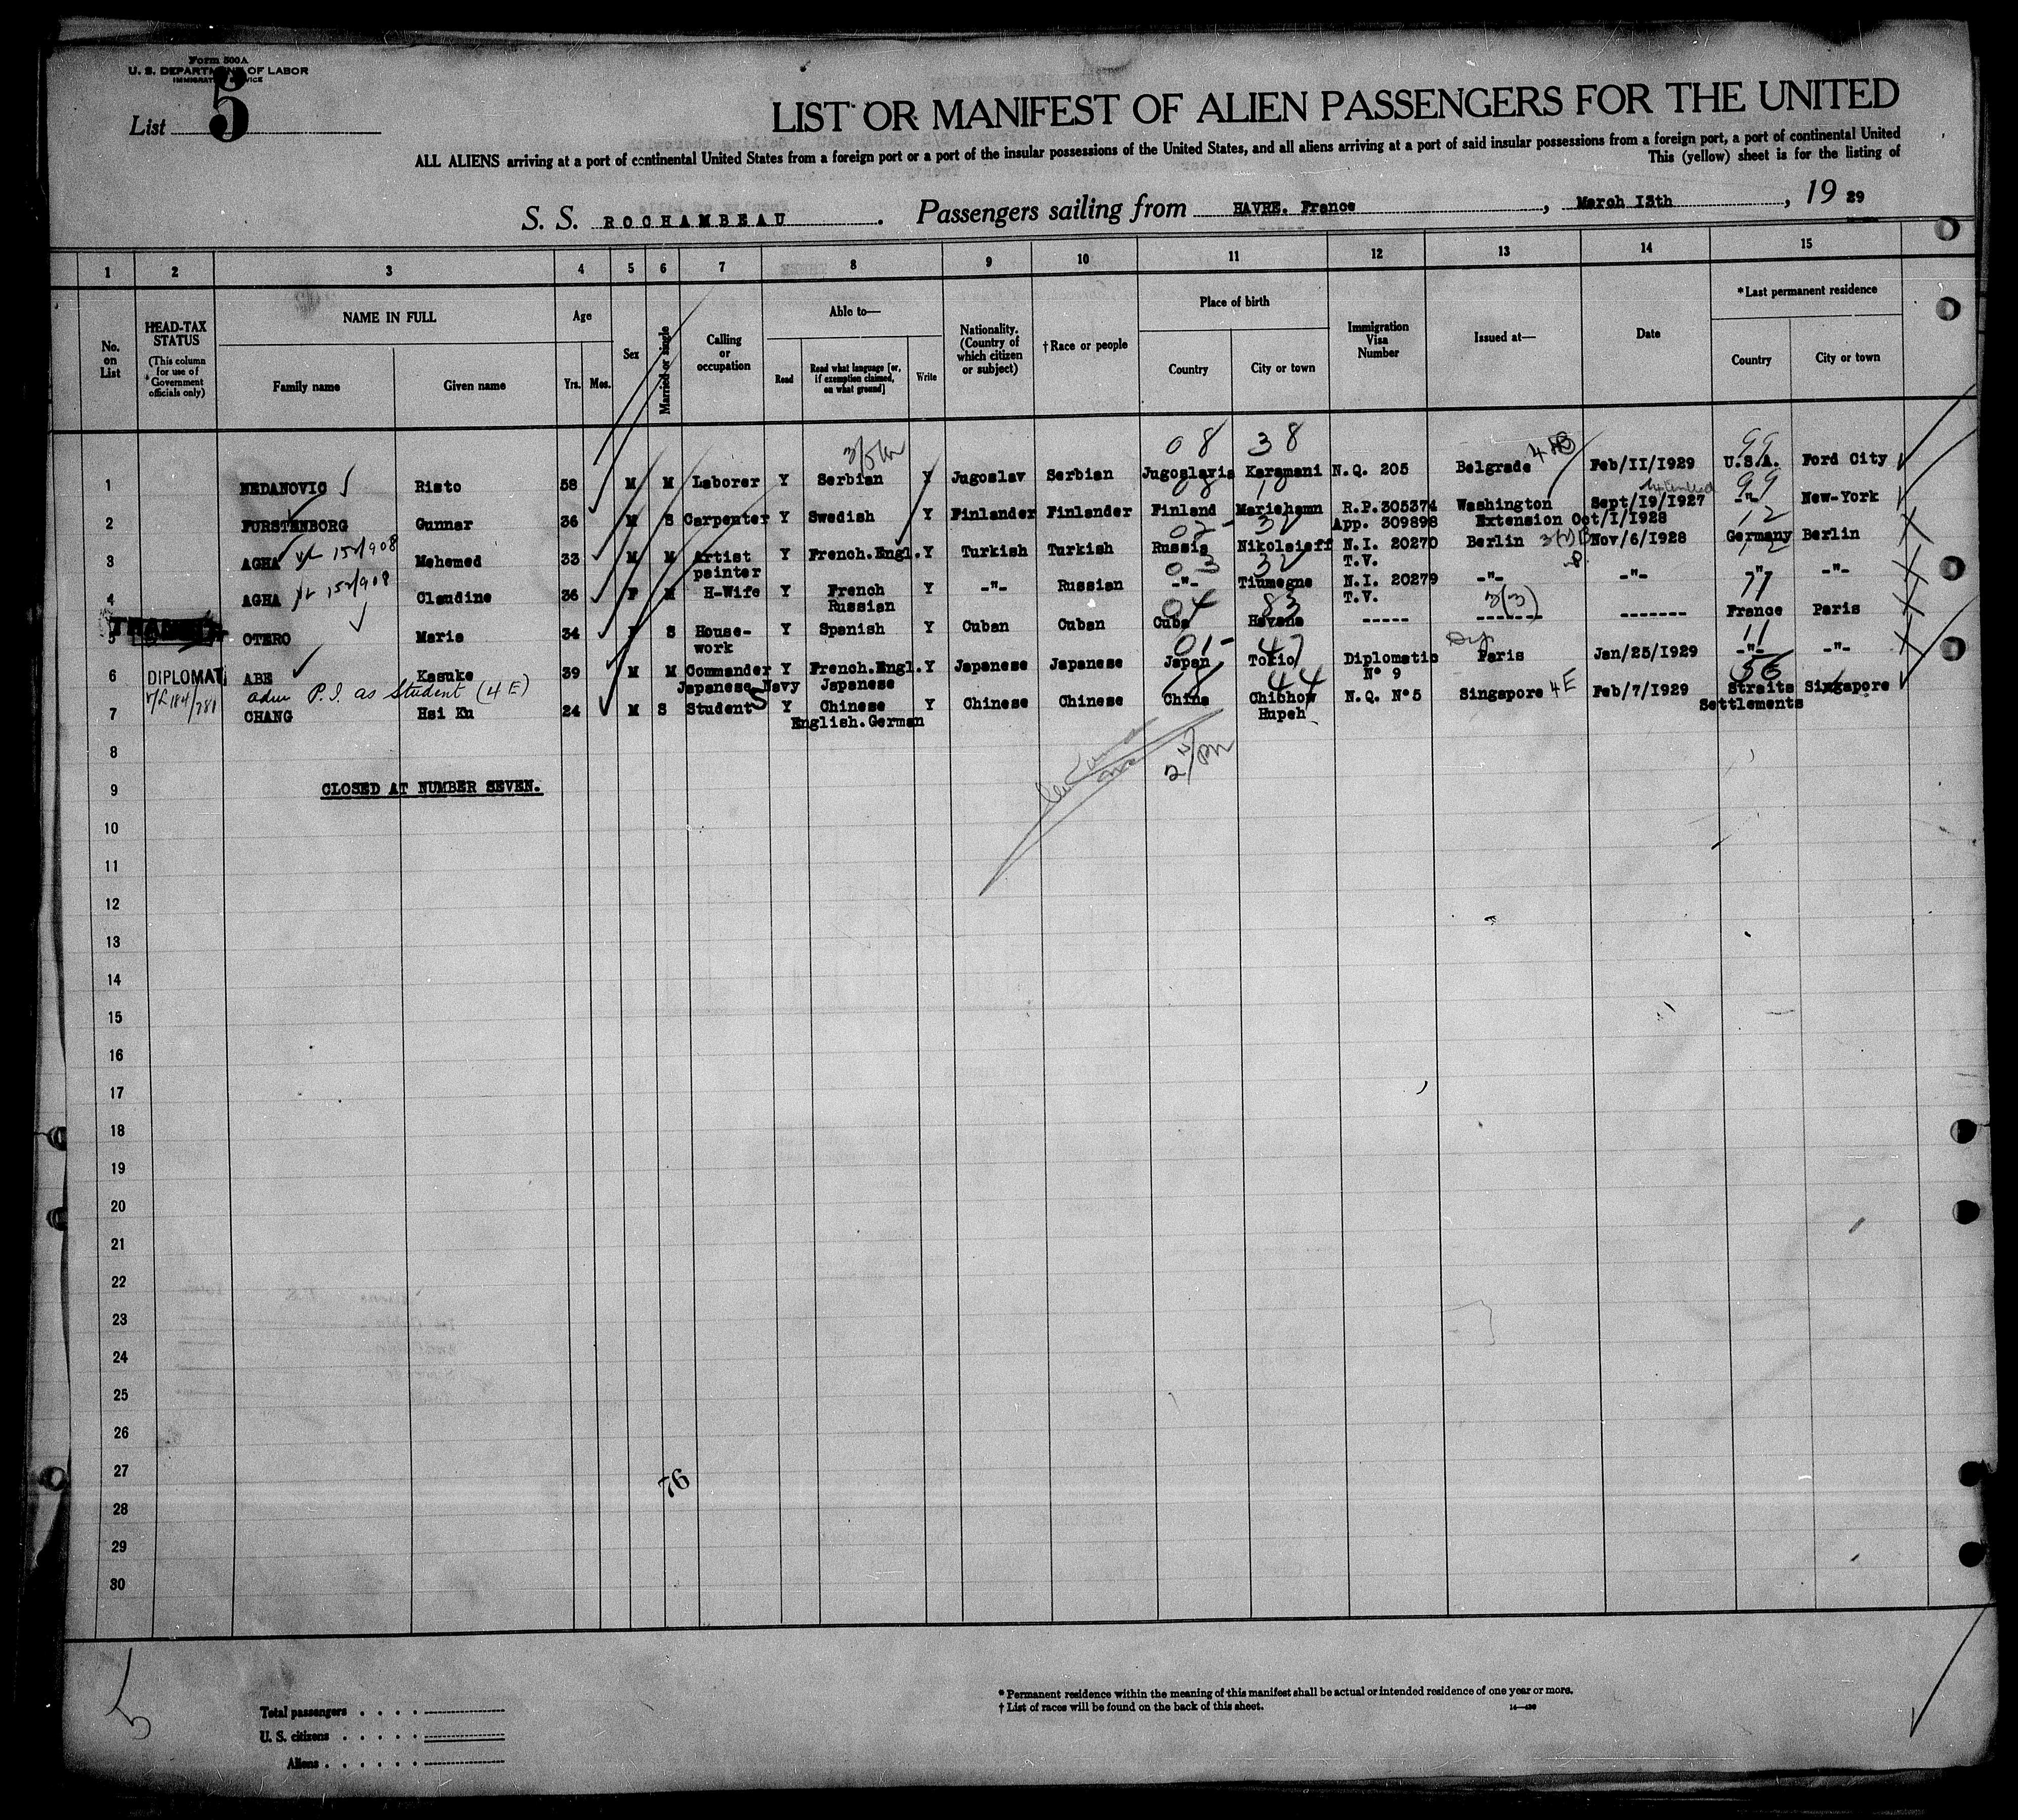 Form 500A
U. S. DEPARTMENT OF LABOR
IMMIGRATION SERVICE
List 5
LIST OR MANIFEST OF ALIEN PASSENGERS FOR THE UNITED
ALL ALIENS arriving at a port of continental United States from a foreign port or a port of the insular possessions of the United States, and all aliens arriving at a port of said insular possessions from a foreign port, a port of continental United
This (yellow) sheet is for the listing of
S. S. ROCHAMBEAU. Passengers sailing from HAVRE. France, March 13th, 19 29
1 2 3 4 5 6 7 8 9 10 11 12 13 14 15
No. on List
HEAD-TAX STATUS (This column for use of Government officials only)
NAME IN FULL
Family name Given name
Age
Yrs. Mos.
Sex
Married or single
Calling or occupation
Able to—
Read Read what language [or, if exemption claimed, on what ground] Write
Nationality. (Country of which citizen or subject)
† Race or people
Place of birth
Country City or town
Immigration Visa Number
Issued at—
Date
* Last permanent residence
Country City or town
08 38 99
1 NEDANOVIC Risto 58 M M Laborer Y Serbian Y Jugoslav Serbian Jugoslavia Karamani N.Q. 205 Belgrade Feb/II/1929 U.S.A. Ford City
08 10 99
2 FURSTENBORG Gunnar 36 M S Carpenter Y Swedish Y Finlander Finlander Finland Mariehamn R.P.305374 Washington Sept/I9/1927 -"- New-York
App. 309898 Extension Oct/I/1928
02- 32 12
3 AGHA 152/908 Mehemed 33 M M Artist painter Y French.Engl. Y Turkish Turkish Russia Nikolaieff N.I. 20270 T.V. Berlin 3(2)B Nov/6/1928 Germany Berlin
03 32 12
4 AGHA 152/908 Claudine 36 F M H-Wife Y French Russian Y -"- Russian -"- Tiumegne N.I. 20279 T.V. -"- -"- -"- -"-
04 83 3(3) 11
TRANSIT
5 OTERO Maria 34 F S House-work Y Spanish Y Cuban Cuban Cuba Havana ----- ------- ------- France Paris
01- 47 Dip 11
6 DIPLOMAT ABE Kasuke 39 M M Commander Japanese Navy Y French.Engl. Japanese Y Japanese Japanese Japan Tokio Diplomatic N° 9 Paris Jan/25/1929 -"- -"-
adm P.I. as Student (4E)
18 44 56
7 CHANG Hsi Ku 24 M S Student S Y Chinese English.German Y Chinese Chinese China Chichow Hupeh N.Q. N°5 Singapore 4E Feb/7/1929 Straits Settlements Singapore
8
9 CLOSED AT NUMBER SEVEN.
10
11
12
13
14
15
16
17
18
19
20
21
22
23
24
25
26
27
28
29
30
76
Total passengers . . . .
U. S. citizens . . . . .
Aliens . . . . . .
* Permanent residence within the meaning of this manifest shall be actual or intended residence of one year or more.
† List of races will be found on the back of this sheet.